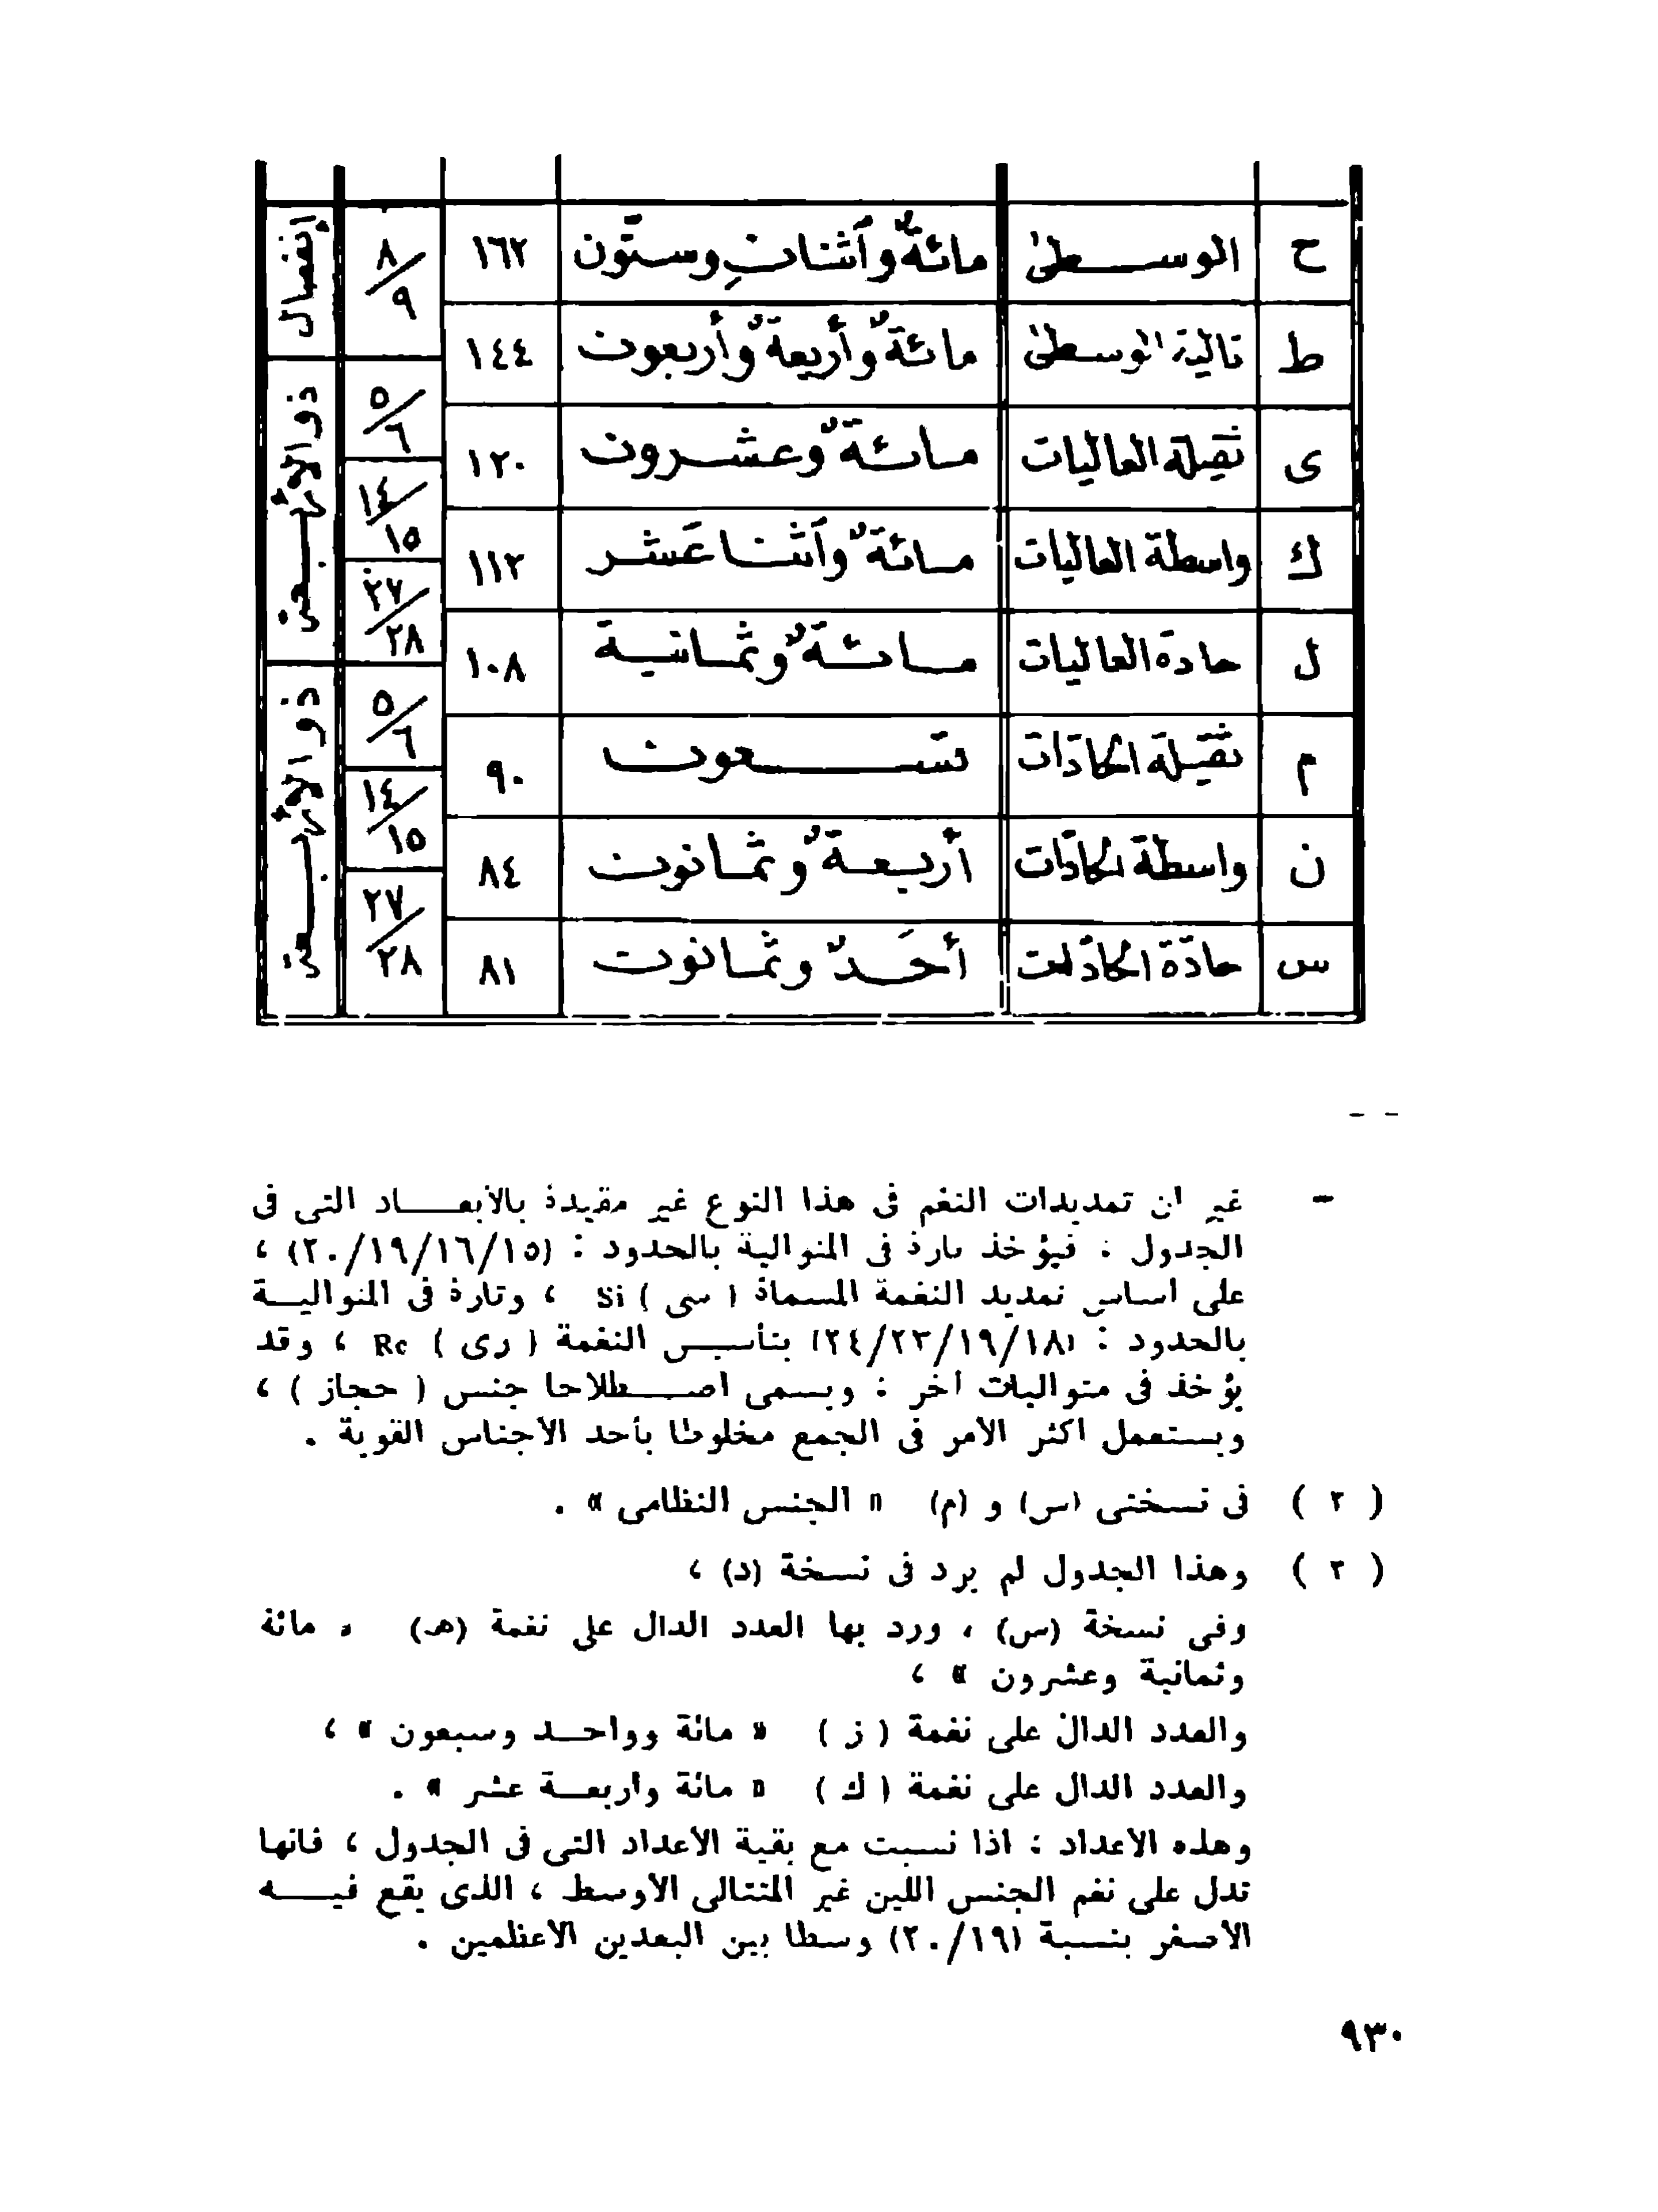 ح الوسطى مائةٌ وآثنان وستّون ١٦٢ ٨/٩ إنفصال
ط تالية الوسطى مائةٌ وأربعةٌ وأربعون ١٤٤
ى ثقيلة العاليات مائةٌ وعشرون ١٢٠ ٥/٦ ذو الأربعة
ك واسطة العاليات مائةٌ وآثنا عَشر ١١٢ ١٤/١٥
ل حادة العاليات مائةٌ وثمانية ١٠٨ ٢٧/٢٨
م ثقيلة الحادّات تسعون ٩٠ ٥/٦ ذو الأربعة
ن واسطة الحادّات أربعةٌ وثمانون ٨٤ ١٤/١٥
س حادّة الحادّات أحَدٌ وثمانون ٨١ ٢٧/٢٨
- غير ان تمديدات النغم فى هذا النوع غير مقيدة بالابعاد التى فى
الجدول ، فيؤخذ تارة فى المتوالية بالحدود : (٢٠/١٩/١٦/١٥) ،
على اساس تمديد النغمة المسماة ( سى ) Si ، وتارة فى المتوالية
بالحدود : (٢٤/٢٣/١٩/١٨) بتأسيس النغمة ( رى ) Re ، وقد
يؤخذ فى متواليات أخر : ويسمى اصطلاحا جنس ( حجاز ) ،
ويستعمل اكثر الامر فى الجمع مخلوطا بأحد الأجناس القوية .
( ٢ ) فى نسختى (س) و (م) « الجنس النظامى » .
( ٣ ) وهذا الجدول لم يرد فى نسخة (د) ،
وفى نسخة (س) ، ورد بها العدد الدال على نغمة (هـ) « مائة
وثمانية وعشرون » ،
والعدد الدال على نغمة ( ز ) « مائة وواحد وسبعون » ،
والعدد الدال على نغمة ( ك ) « مائة واربعة عشر » .
وهذه الأعداد : اذا نسبت مع بقية الأعداد التى فى الجدول ، فانها
تدل على نغم الجنس اللين غير المتتالى الأوسط ، الذى يقع فيه
الأصغر بنسبة (٢٠/١٩) وسطا بين البعدين الأعظمين .
٩٣٠